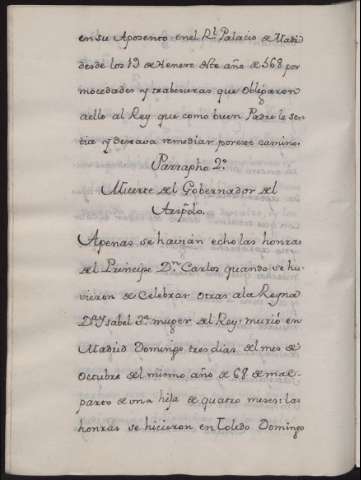 en su Aposento en el Rl. Palacio de Madrid
desde los 19 de Henero dste año de 568 por
mocedades y trabesuras que obligaron
aello al Rey que como buen Padre le sen-
tia y deseava remediar por este camino.
Parrapho 2º
Muerte del Gobernador del
Arzpdo.
Apenas se havian echo las honras
del Principe Dn Carlos quando se hu-
vieron de Celebrar otras ala Reyna
Dª Ysabel 3ª muger del Rey: murió en
Madrid Domingo tres dias del mes de
Octubre del mismo año de 68 de mal-
parto de vna hija de quatro meses: las
honras se hicieron en Toledo Domingo